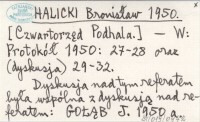 HALICKI Bronisław 1950.
[Czwartorzęd Podhala.] — W:
Protokół 1950: 27-28 oraz
(dyskusja) 29-32.
Dyskusja nad tym referatem
była wspólna z dyskusją nad re-
feratem: GOŁĄB J. 1950 a.